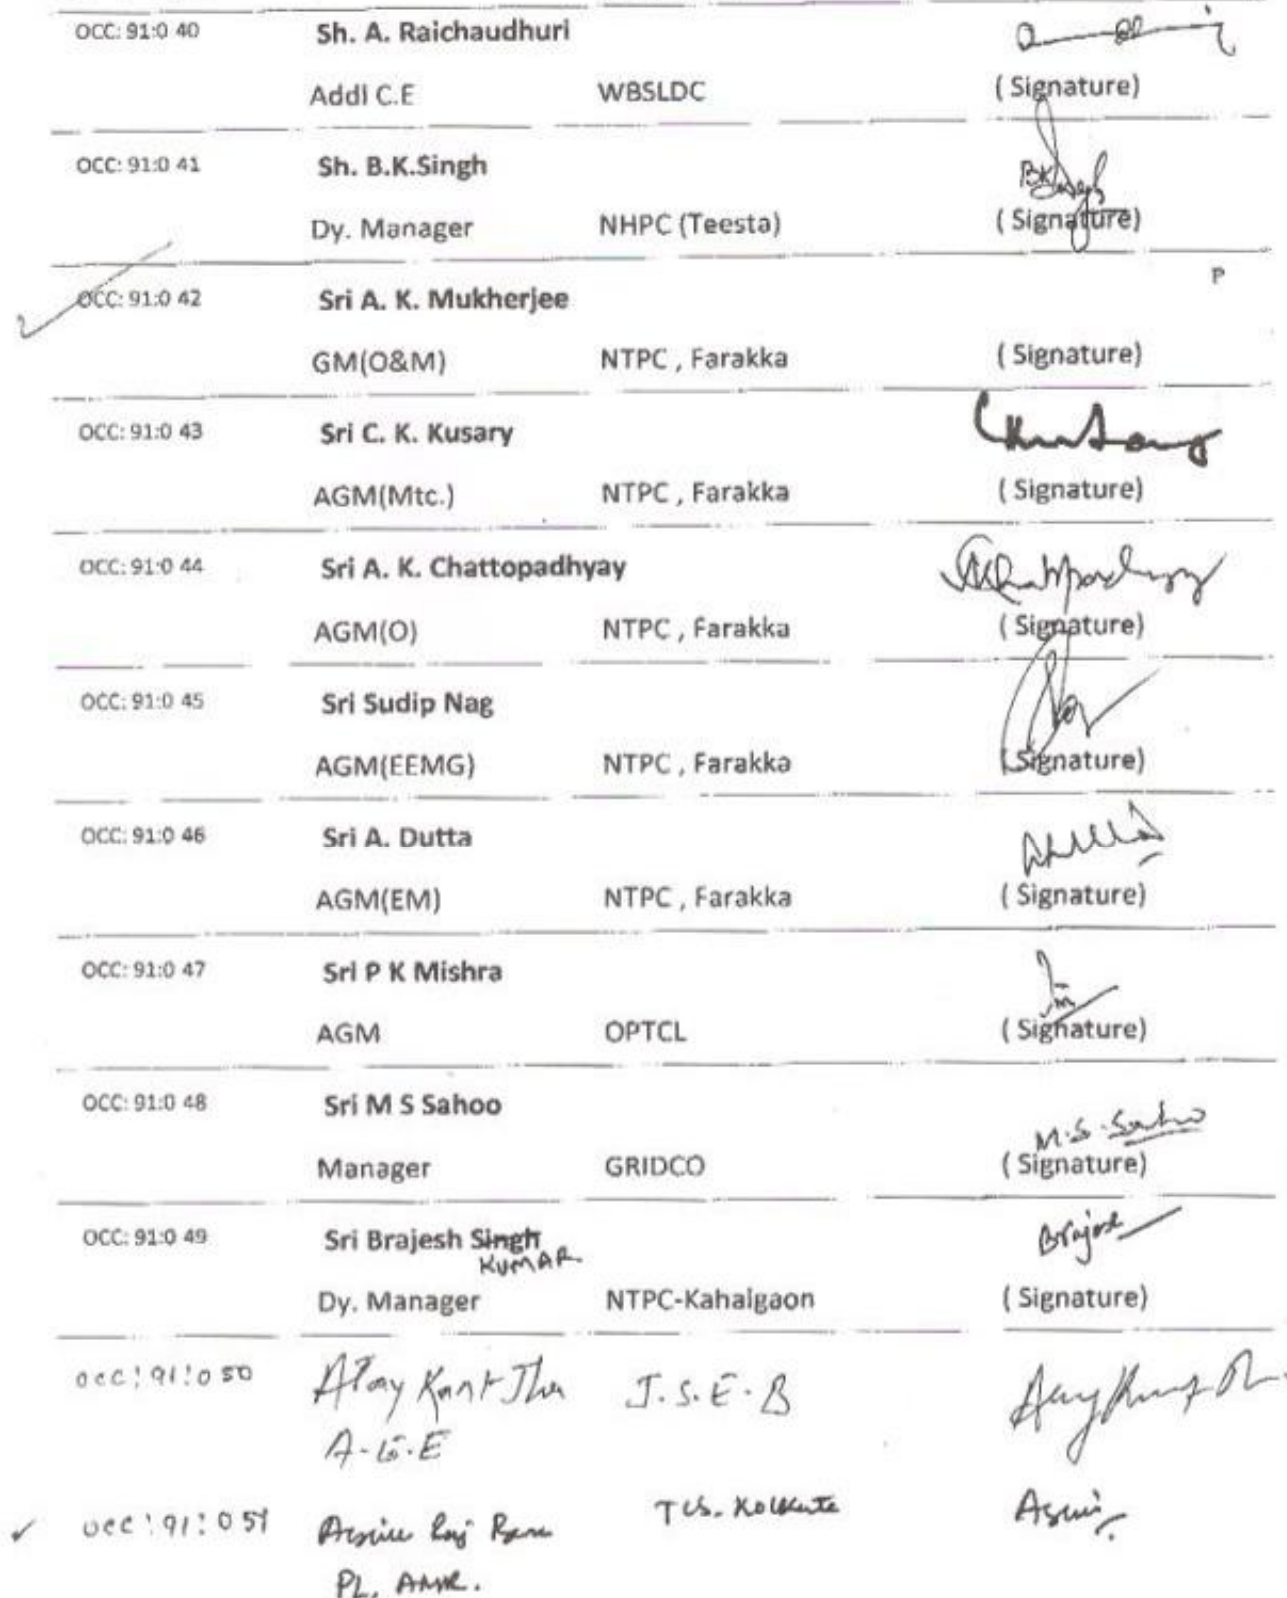 OCC: 91:0 40 Sh. A. Raichaudhuri
Addl C.E WBSLDC ( Signature)
OCC: 91:0 41 Sh. B.K.Singh
Dy. Manager NHPC (Teesta) ( Signature)
P
OCC: 91:0 42 Sri A. K. Mukherjee
GM(O&M) NTPC , Farakka ( Signature)
OCC: 91:0 43 Sri C. K. Kusary
AGM(Mtc.) NTPC , Farakka ( Signature)
OCC: 91:0 44 Sri A. K. Chattopadhyay
AGM(O) NTPC , Farakka ( Signature)
OCC: 91:0 45 Sri Sudip Nag
AGM(EEMG) NTPC , Farakka ( Signature)
OCC: 91:0 46 Sri A. Dutta
AGM(EM) NTPC , Farakka ( Signature)
OCC: 91:0 47 Sri P K Mishra
AGM OPTCL ( Signature)
OCC: 91:0 48 Sri M S Sahoo M.S. Sahoo
Manager GRIDCO ( Signature)
OCC: 91:0 49 Sri Brajesh Singh Brajesh
KUMAR
Dy. Manager NTPC-Kahalgaon ( Signature)
OCC: 91:0 50 Kant Jha J.S.E.B
A.E.E
OCC: 91:0 51 TCS. Kolkata
PL, AMR.